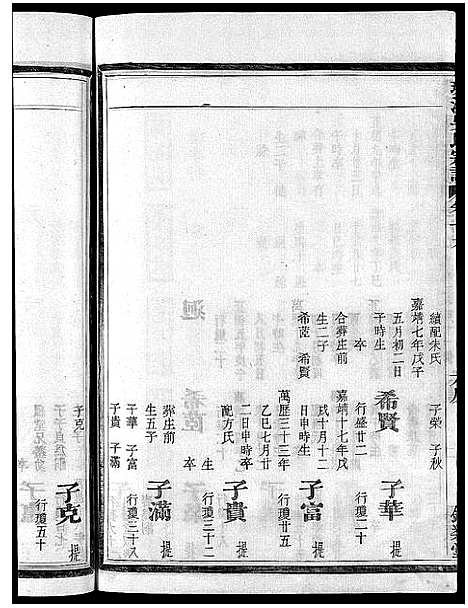 續配朱氏
子榮 子秋
嘉靖七年戊子
五月初二日
午時生
卒
合葬庄前
生二子
希賢
希賢
行盛廿二
嘉靖十七年戊
戌十月十二
日申時生
萬歷三十三年
乙巳七月廿
二日申時卒
配方氏
生
卒
葬庄前
生五子
子華 子富
子貴 子滿
子克
子華
提
行瓊二十
子富
提
行瓊廿五
子貴
提
行瓊三十二
子滿
提
行瓊三十八
子克
提
行瓊五十